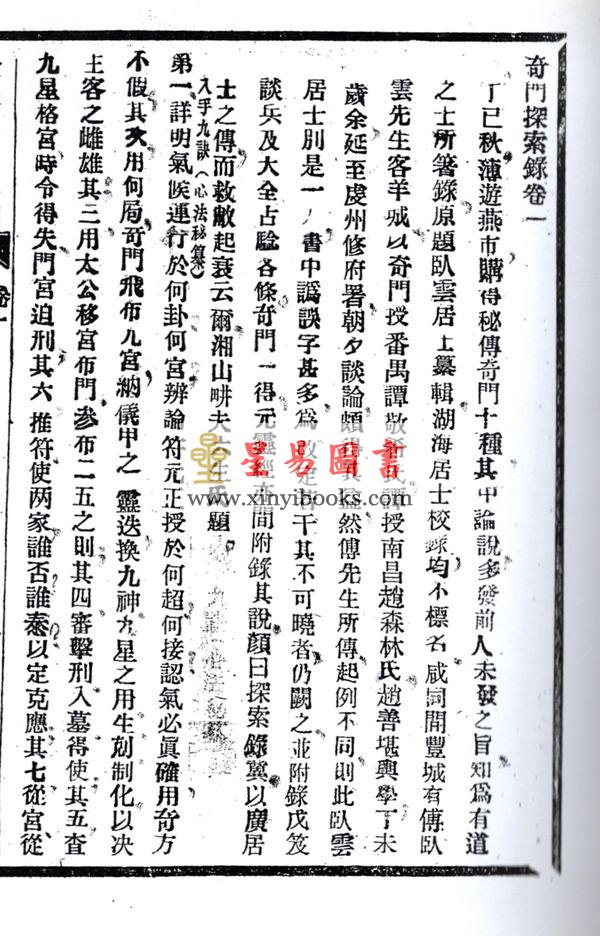 奇門探索錄卷一
丁巳秋薄遊燕市購得秘傳奇門十種其中論說多發前人未發之旨知爲有道
之士所箸錄原題臥雲居士纂輯湖海居士校錄均不標名咸同開豐城有傅臥
雲先生客羊城以奇門授番禺譚敬 氏譚授南昌趙森林氏趙善堪輿學丁未
歲余延至虔州修府署朝夕談論頗得其 然傅先生所傳起例不同則此臥雲
居士別是一人書中譌誤字甚多爲改定若干其不可曉者仍闕之並附錄戊笈
談兵及大全占驗各條奇門一得元靈經亦間附錄其說顏曰探索錄冀以廣居
士之傳而救敝起衰云爾湘山畊夫 題
入手九訣(心法秘纂)
第一詳明氣候運行於何卦何宮辨論符元正授於何超何接認氣必眞確用奇方
不假其次用何局奇門飛布九宮納儀甲之 靈迭換九神九星之用生剋制化以決
主客之雌雄其三用太公移宮布門參布二五之則其四審擊刑入墓得使其五查
九星格宮時令得失門宮迫刑其六 推符使两家誰否誰泰以定克應其七從宮從
卷一
星易圖書
www.xinyibooks.com